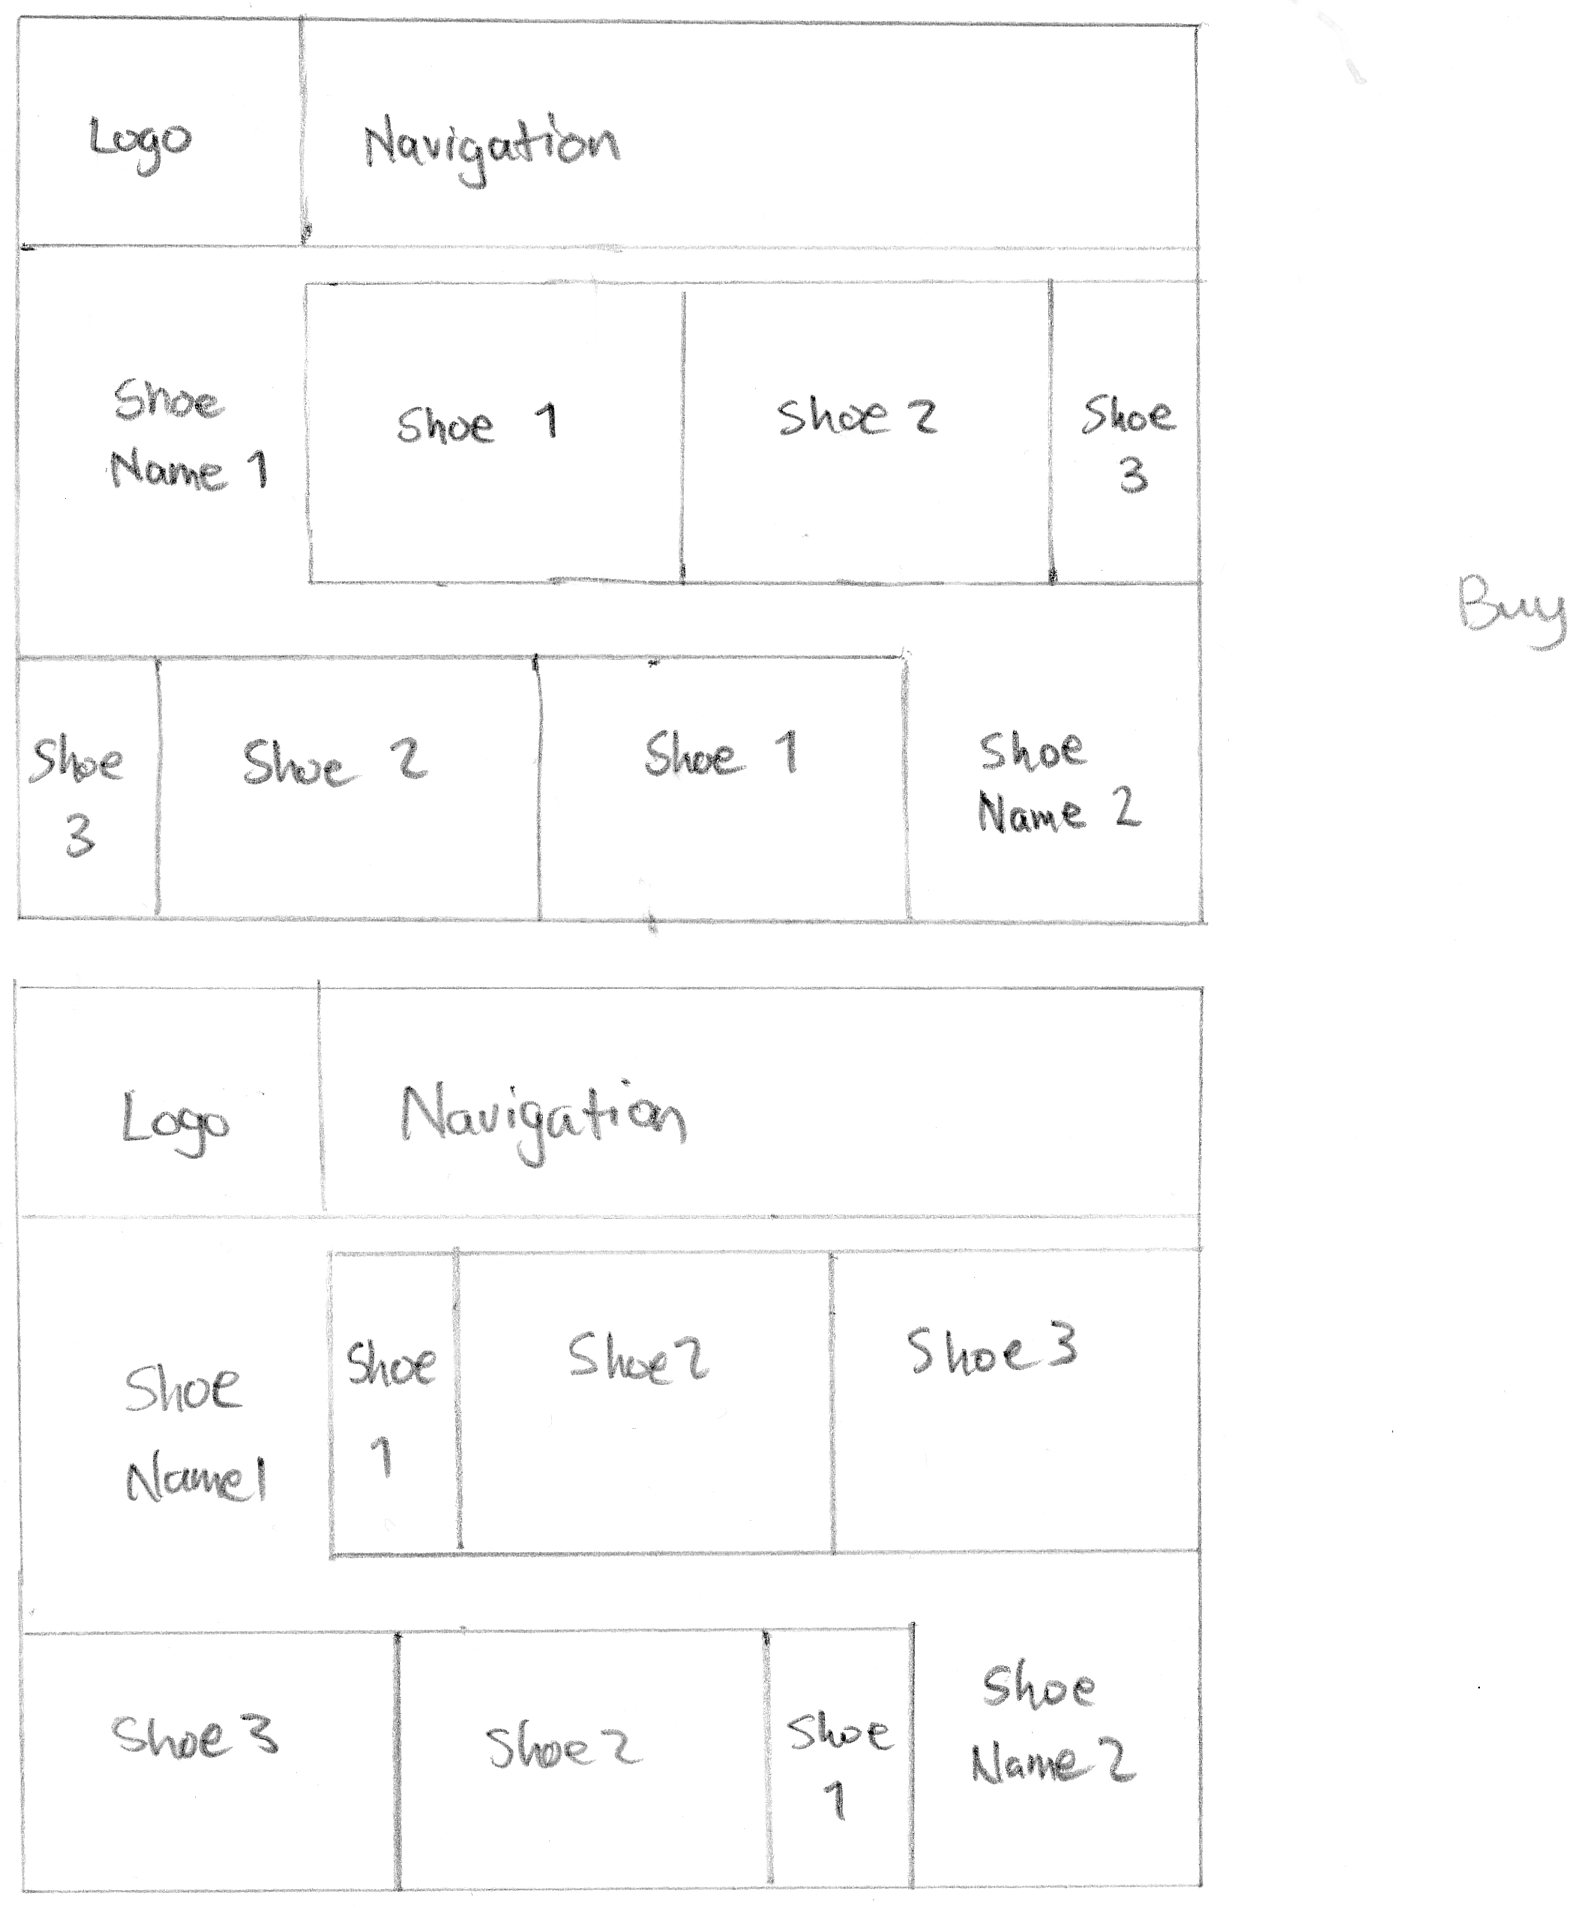 Logo
Navigation
Shoe
Name 1
Shoe 1
Shoe 2
Shoe
3
Buy
Shoe
3
Shoe 2
Shoe 1
Shoe
Name 2
Logo
Navigation
Shoe
Name1
Shoe
1
Shoe2
Shoe 3
Shoe 3
Shoe 2
Shoe
1
Shoe
Name 2